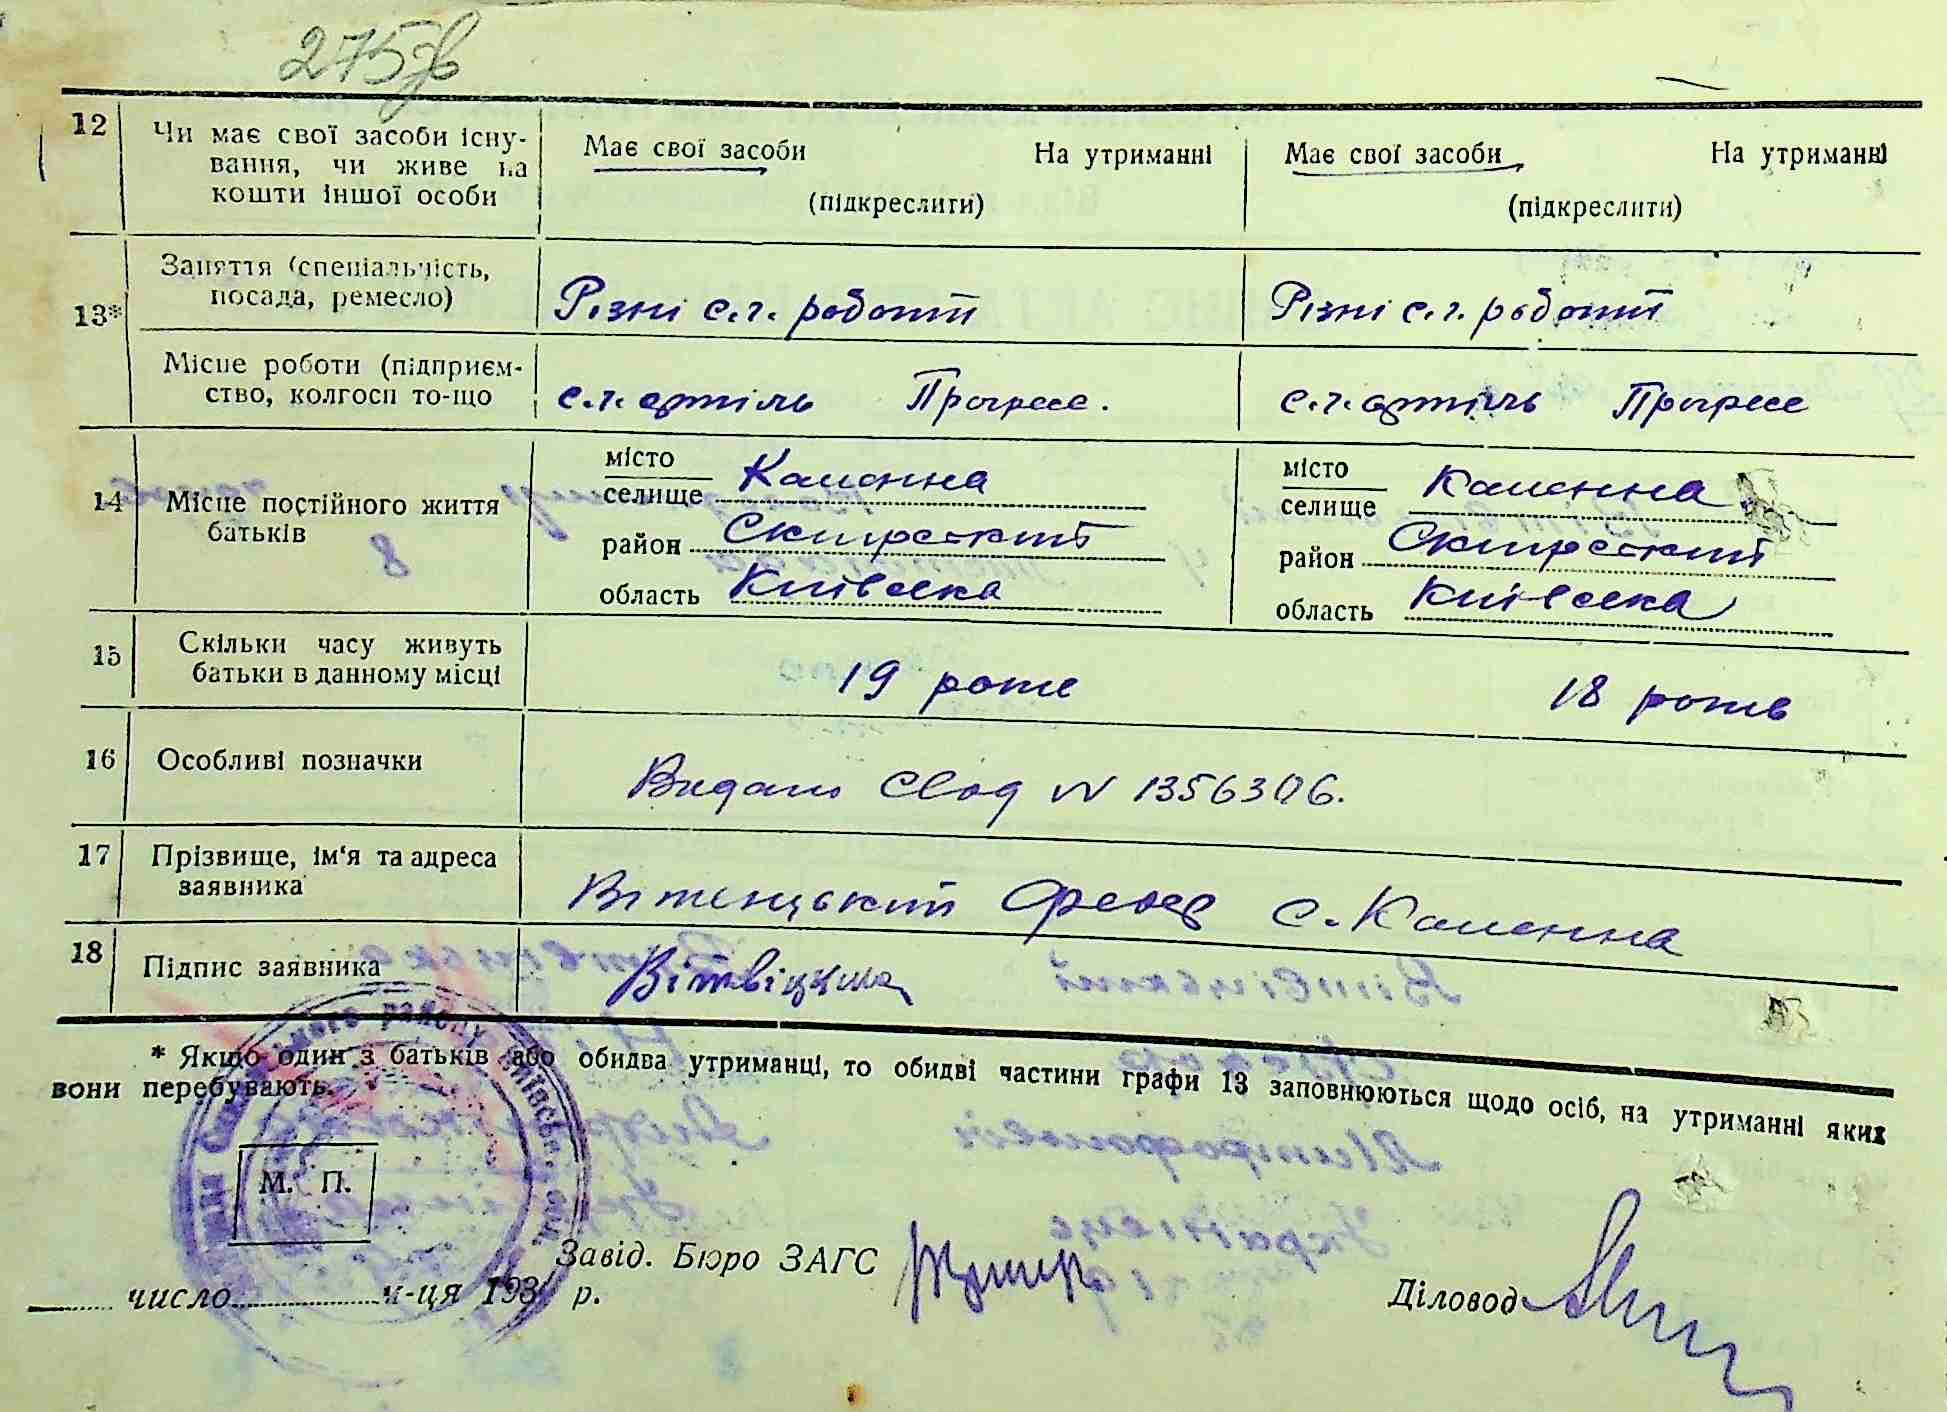 275зв
12 Чи має свої засоби існу-
вання, чи живе на
кошти іншої особи
Має свої засоби На утриманні
(підкреслити)
Має свої засоби На утриманні
(підкреслити)
13*
Заняття (спеціальність,
посада, ремесло)
Різні с.г. роботи
Різні с.г. роботи
Місце роботи (підприєм-
ство, колгосп то-що
с.г. артіль Прогрес.
с.г. артіль Прогрес
14 Місце постійного життя
батьків
місто
селище Каменна
район Сквирський
область Київська
місто
селище Каменна
район Сквирський
область Київська
15 Скільки часу живуть
батьки в данному місці
19 років
18 років
16 Особливі позначки
Видано Свод N 1356306.
17 Прізвище, ім'я та адреса
заявника
с. Каменна
18 Підпис заявника
* Якщо один з батьків або обидва утриманці, то обидві частини графи 13 заповнюються щодо осіб, на утриманні яких
вони перебувають.
М. П.
Завід. Бюро ЗАГС
число м-ця 193 р.
Діловод